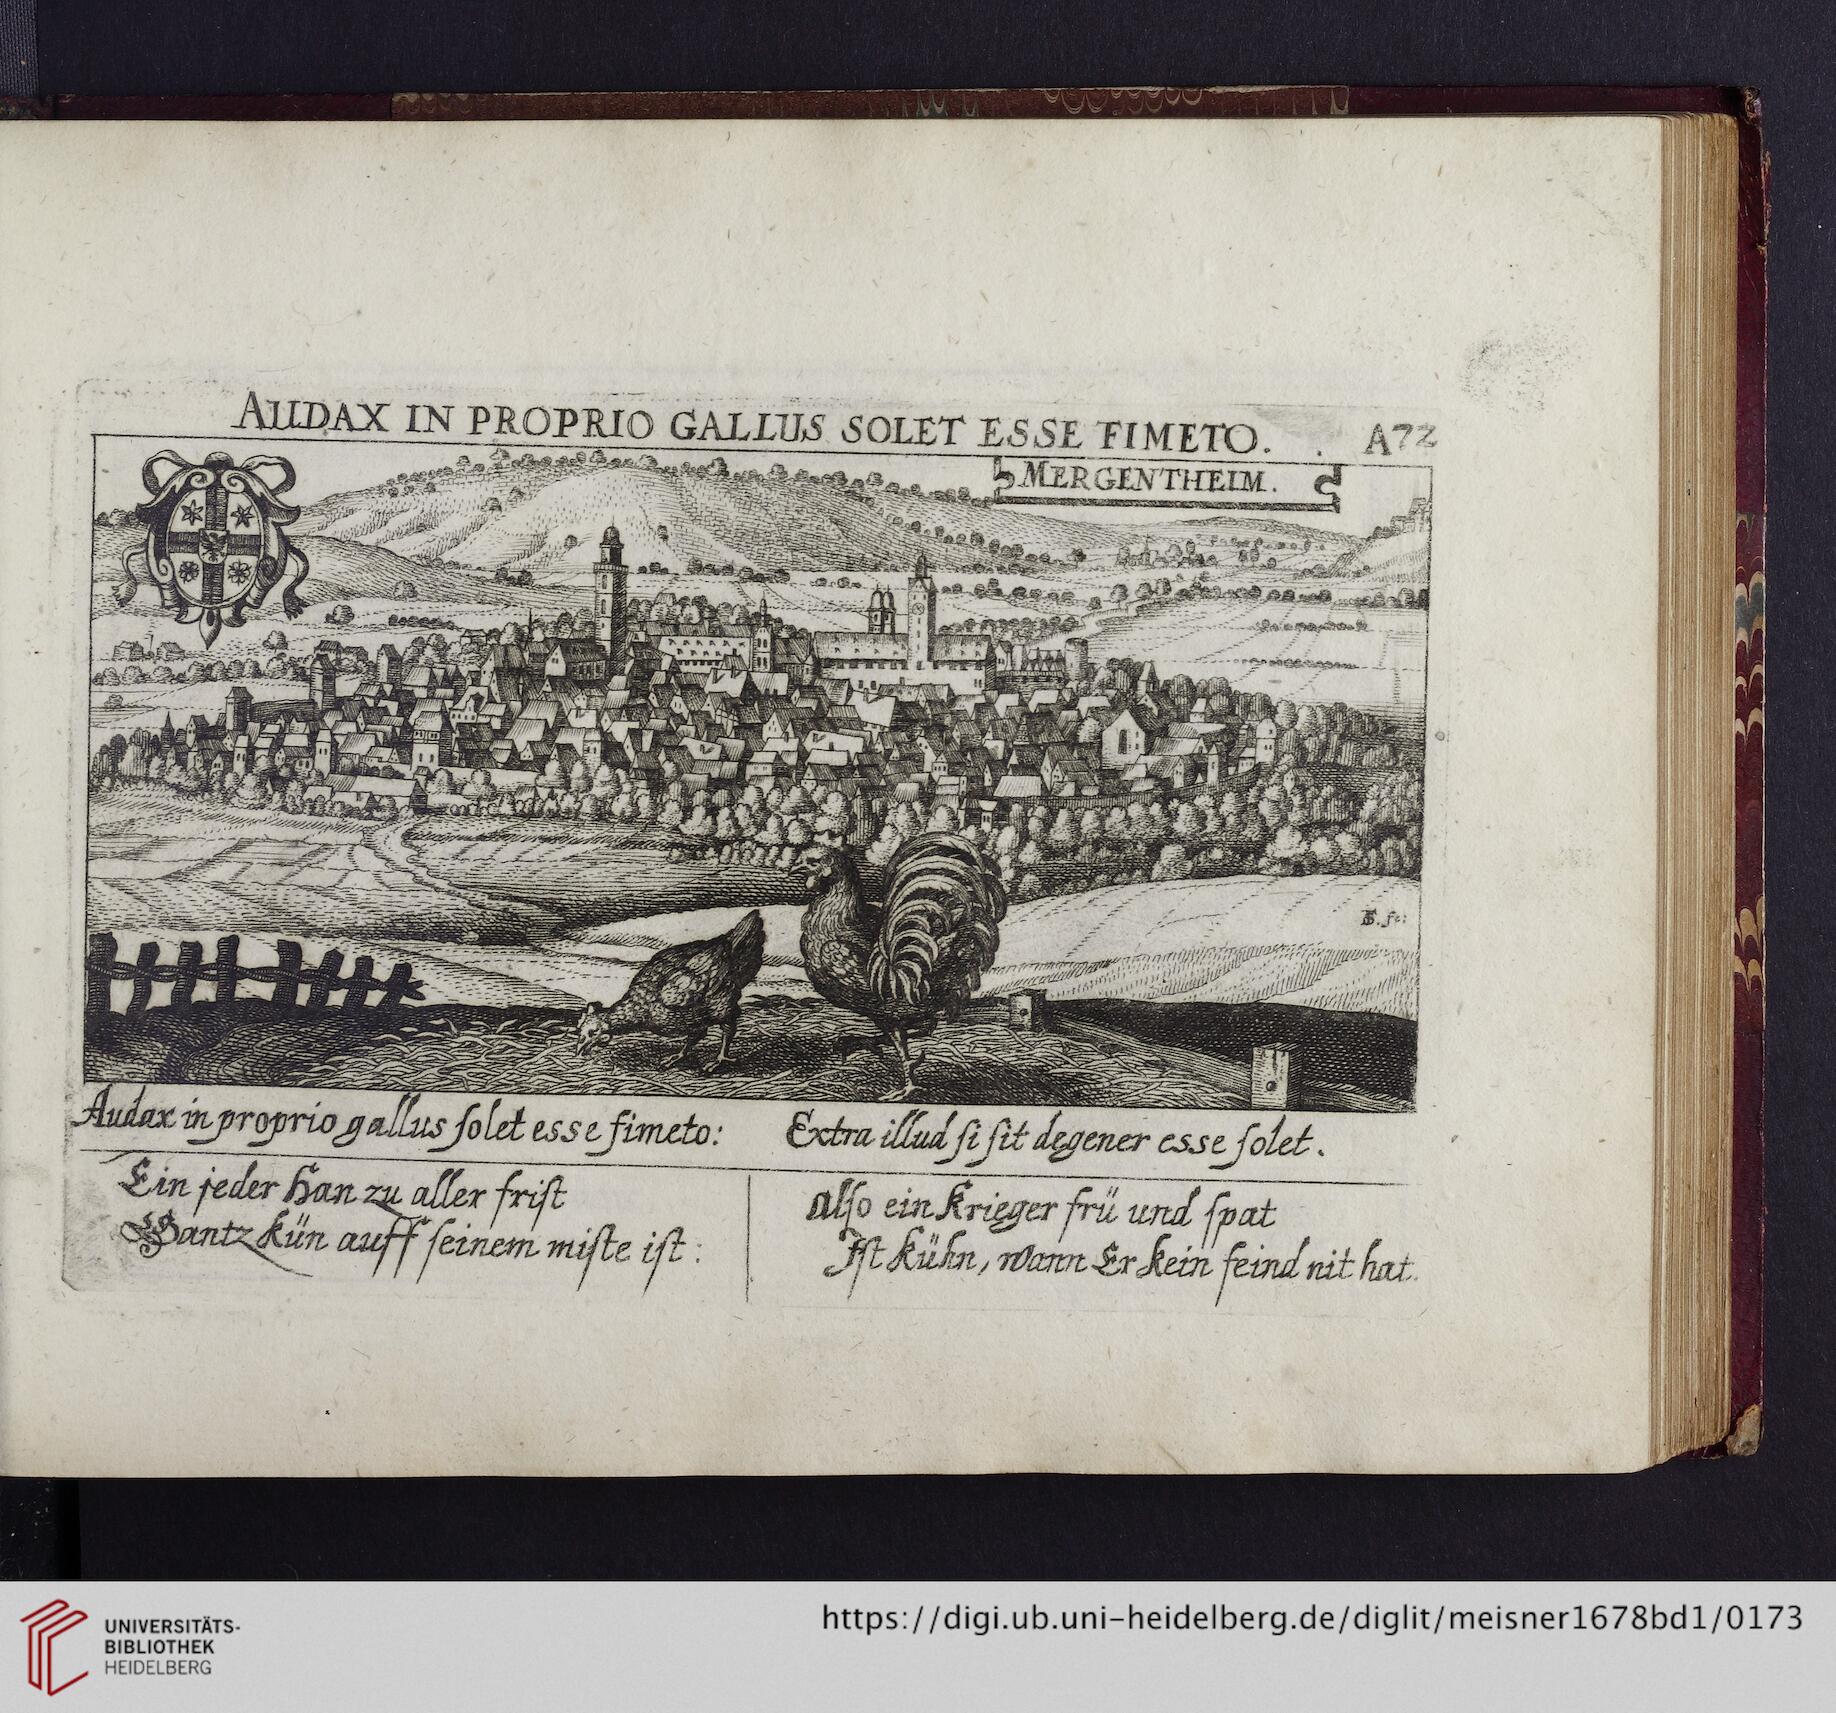 AUDAX IN PROPRIO GALLUS SOLET ESSE FIMETO. . A72
MERGENTHEIM.
fe:
Audax in proprio gallus ſolet esse fimeto: Extra illud ſi ſit degener esse ſolet.
Ein jeder Han zu aller friſt
Gantz kün auff ſeinem miſte iſt:
alſo ein Krieger frü und ſpat
Iſt kühn, wann Er kein feind nit hat.
UNIVERSITÄTS-
BIBLIOTHEK
HEIDELBERG
https://digi.ub.uni-heidelberg.de/diglit/meisner1678bd1/0173